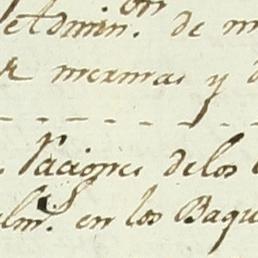 etdmin.on de m
mermas y d
Raciones delos
alm.s en los Baqu